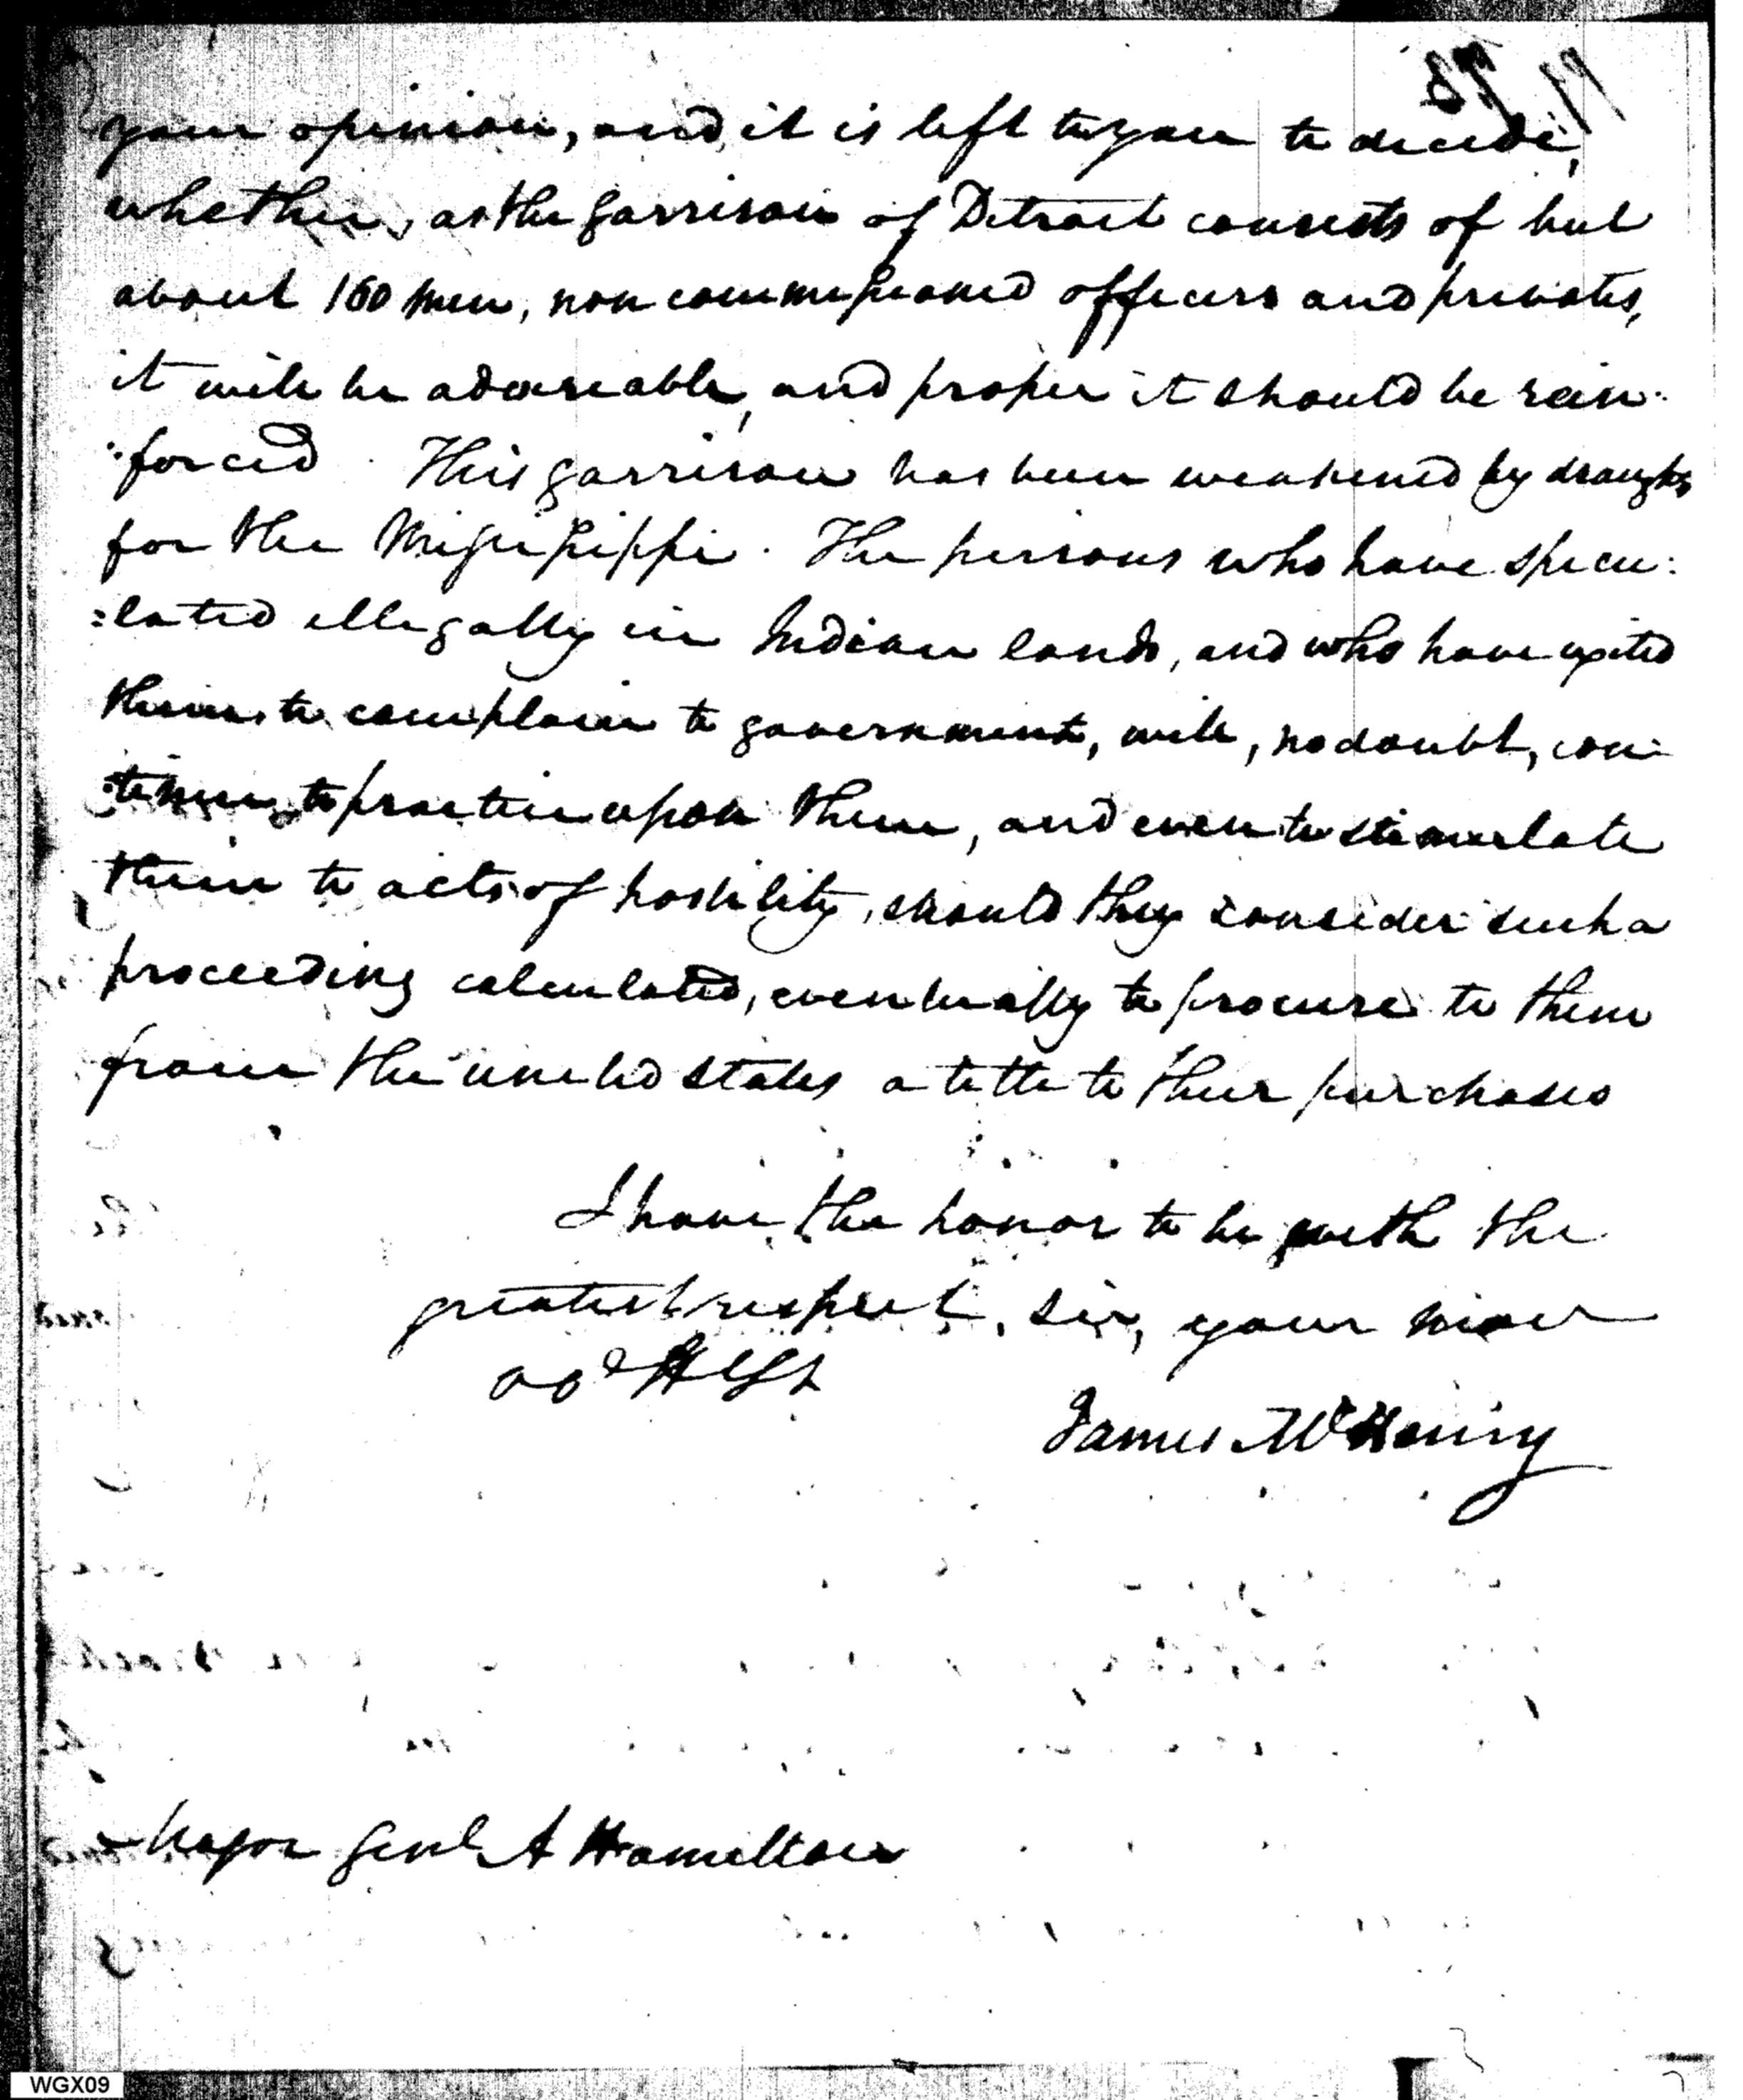 your opinion, and it is left to you to decide,
whether, as the garrison of Detroit consists of but
about 160 men, non commissioned officers and privates,
it will be adviseable, and proper it should be rein-
:forced. This garrison has been weakened by draughts
for the Missisippi. The persons who have specu:
:lated illegally in Indian lands, and who have excited
them to complain to government, will, no doubt, con:
:tinue to practice upon them, and even to stimulate
them to acts of hostility, should they consider such a
proceeding calculated, eventually to procure to them
from the united states a title to their purchases
I have the honor to be with the
greatest respect, sir, your most
ob^d H^l S^t
James McHenry
Major Genl A Hamilton
WGX09